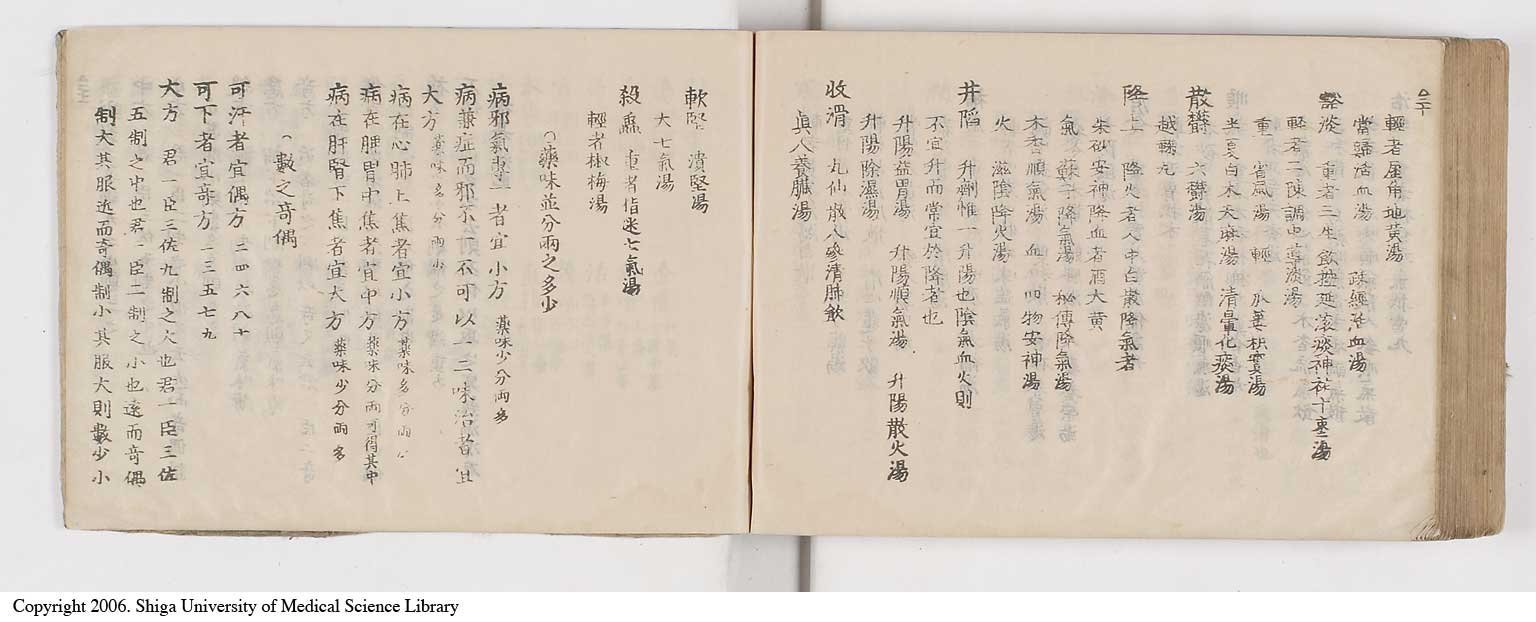 輕者犀角地黃湯
當歸活血湯 疎經活血湯
豁淡 重者三生飲控延滾痰神祐十棗湯
輕者二陳調中導淡湯
重 省風湯 輕 瓜蔞枳實湯
半夏白朮天麻湯 清暈化痰湯
散欝 六欝湯
越鞠丸
降 降火者人中白散降氣者
朱砂安神降血者酒大黃
氣 蘇子降氣湯 秘傳降氣湯
木香順氣湯 血 四物安神湯
火 滋陰降火湯
升陷 升劑惟一升陽也陰氣血火則
不宜升而常宜於降者也
升陽益胃湯 升陽順氣湯 升陽散火湯
升陽除濕湯
收滑 九仙散人參清肺飲
眞人養臟湯
軟堅 潰堅湯
大七氣湯
殺 重者指迷七氣湯
輕者椒梅湯
藥味並分兩之多少
病邪氣專一者宜小方 藥味少分兩多
病兼症而邪不 不可以一二味治者宜
大方 藥味多分兩少
病在心肺上焦者宜小方 藥味多分兩
病在脾胃中焦者宜中方 藥味分兩可得其中
病在肝腎下焦者宜大方 藥味少分兩多
數之奇偶
可汗者宜偶方 二四六八十
可下者宜奇方 一三五七九
大方 君一臣三佐九制之大也君一臣三佐
五制之中也君一臣二制之小也遠而奇偶
制大其服近而奇偶制小其服大則數少小
Copyright 2006. Shiga University of Medical Science Library